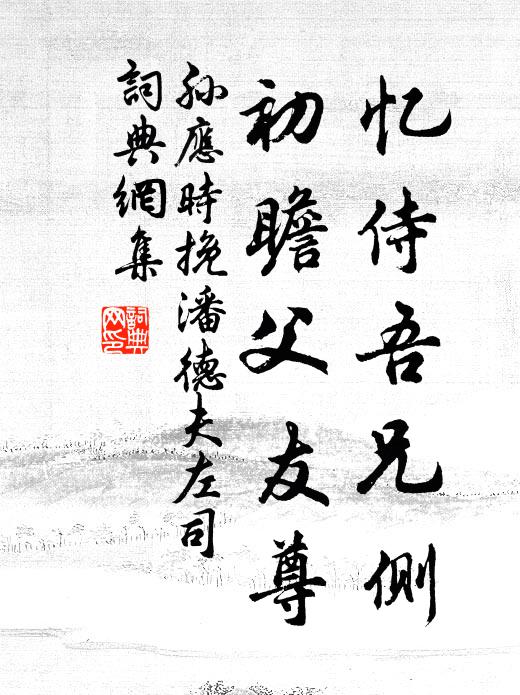 忆侍吾兄侧
初瞻父友尊
孙應時挽潘德夫左司
詞典網集
詞典网印